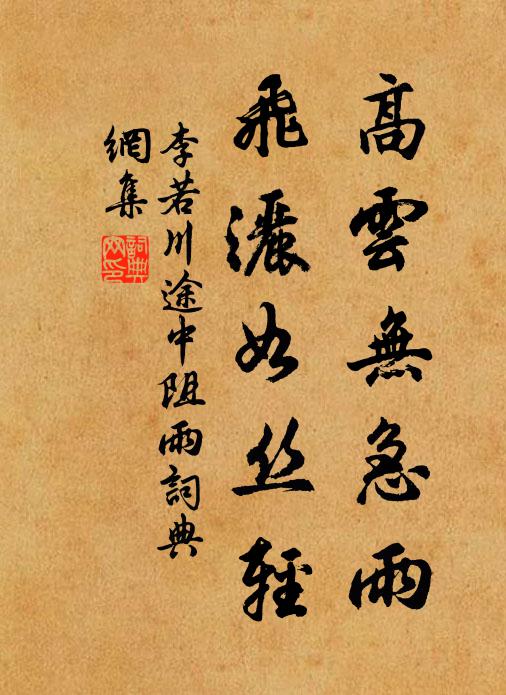 高雲無急雨
飛灑如丝輕
李若川途中阻雨詞典
網集
詞典
网印